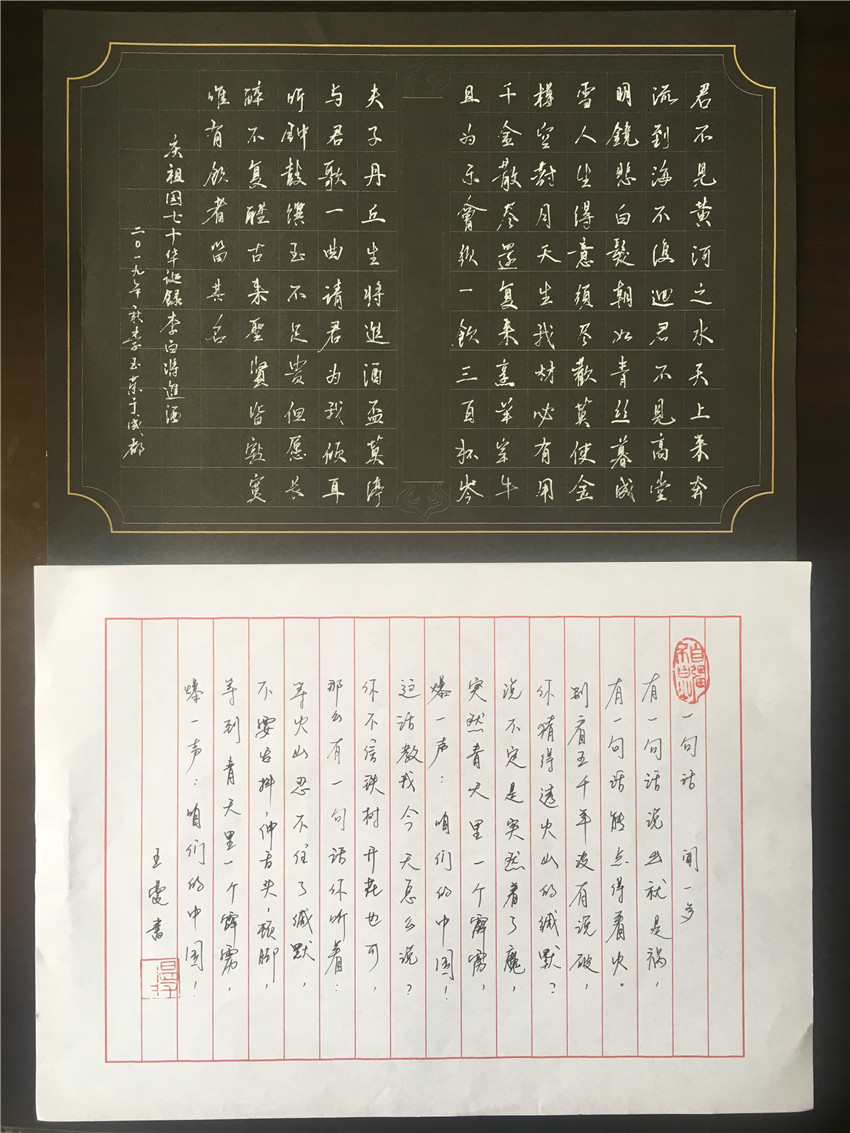 君不见黄河之水天上来奔
流到海不復迴君不見高堂
明鏡悲白髮朝如青丝暮成
雪人生得意须尽歡莫使金
樽空對月天生我材必有用
千金散尽還复来烹羊宰牛
且为乐會须一飲三百杯岑
夫子丹丘生将進酒盃莫停
与君歌一曲请君为我倾耳
听鈡鼓馔玉不足贵但愿长
醉不复醒古来聖贤皆寂寞
唯有飲者留其名
庆祖国七十华诞録李白将進酒
二〇一九年秋李玉荣于成都
一句话 闻一多
有一句话说出就是祸，
有一句话能点得着火。
别看五千年没有说破，
你猜得透火山的缄默？
说不定是突然着了魔，
突然青天里一个霹雳，
爆一声：咱们的中国！
这话教我今天怎么说？
你不信铁树开花也可，
那么有一句话你听着：
等火山忍不住了缄默，
不要发抖，伸舌头，顿脚，
等到青天里一个霹雳，
爆一声：咱们的中国！
王雯书